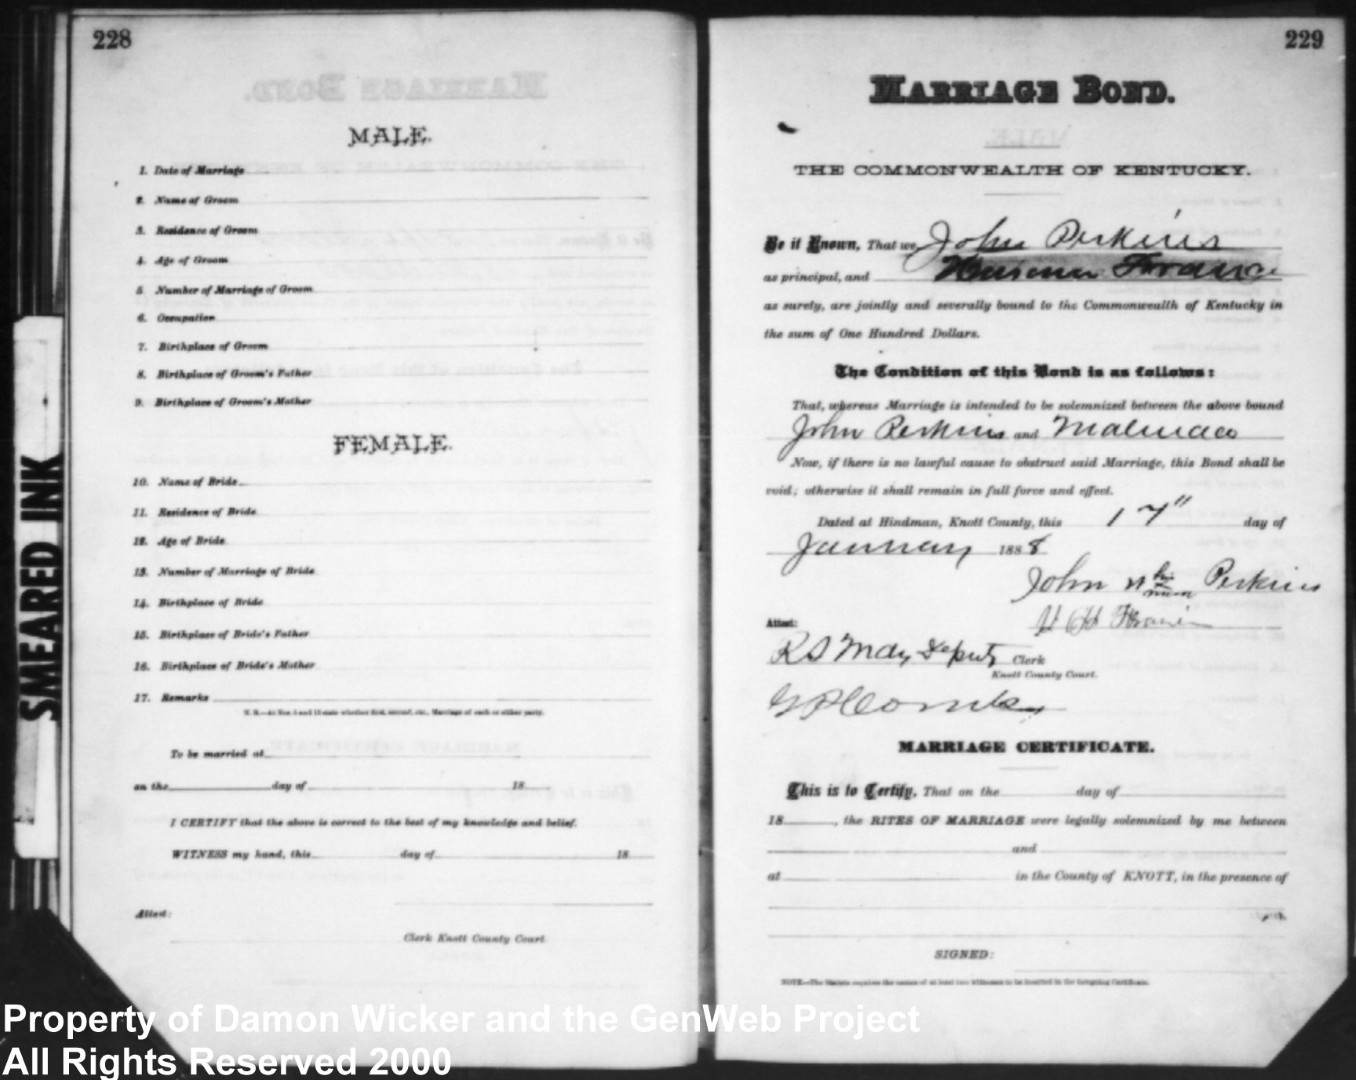 228
MALE.
1. Date of Marriage
2. Name of Groom
3. Residence of Groom
4. Age of Groom
5. Number of Marriage of Groom
6. Occupation
7. Birthplace of Groom
8. Birthplace of Groom's Father
9. Birthplace of Groom's Mother
FEMALE.
10. Name of Bride
11. Residence of Bride
12. Age of Bride
13. Number of Marriage of Bride
14. Birthplace of Bride
15. Birthplace of Bride's Father
16. Birthplace of Bride's Mother
17. Remarks
N. B.—At Nos. 5 and 13 state whether first, second, etc., Marriage of each or either party.
To be married at
on the day of 18
I CERTIFY that the above is correct to the best of my knowledge and belief.
WITNESS my hand, this day of 18
Attest:
Clerk Knott County Court
229
MARRIAGE BOND.
THE COMMONWEALTH OF KENTUCKY.
Be it Known, That we, John Perkins
as principal, and
as surety, are jointly and severally bound to the Commonwealth of Kentucky in
the sum of One Hundred Dollars.
The Condition of this Bond is as follows:
That, whereas Marriage is intended to be solemnized between the above bound
John Perkins and
Now, if there is no lawful cause to obstruct said Marriage, this Bond shall be
void; otherwise it shall remain in full force and effect.
Dated at Hindman, Knott County, this 17" day of
January 1888
John Perkins
Attest:
R S May Deputy Clerk
Knott County Court.
MARRIAGE CERTIFICATE.
This is to Certify, That on the day of
18 , the RITES OF MARRIAGE were legally solemnized by me between
and
at in the County of KNOTT, in the presence of
SIGNED:
NOTE.—The Statute requires the names of at least two witnesses to be inserted in the foregoing Certificate.
SMEARED INK
Property of Damon Wicker and the GenWeb Project
All Rights Reserved 2000